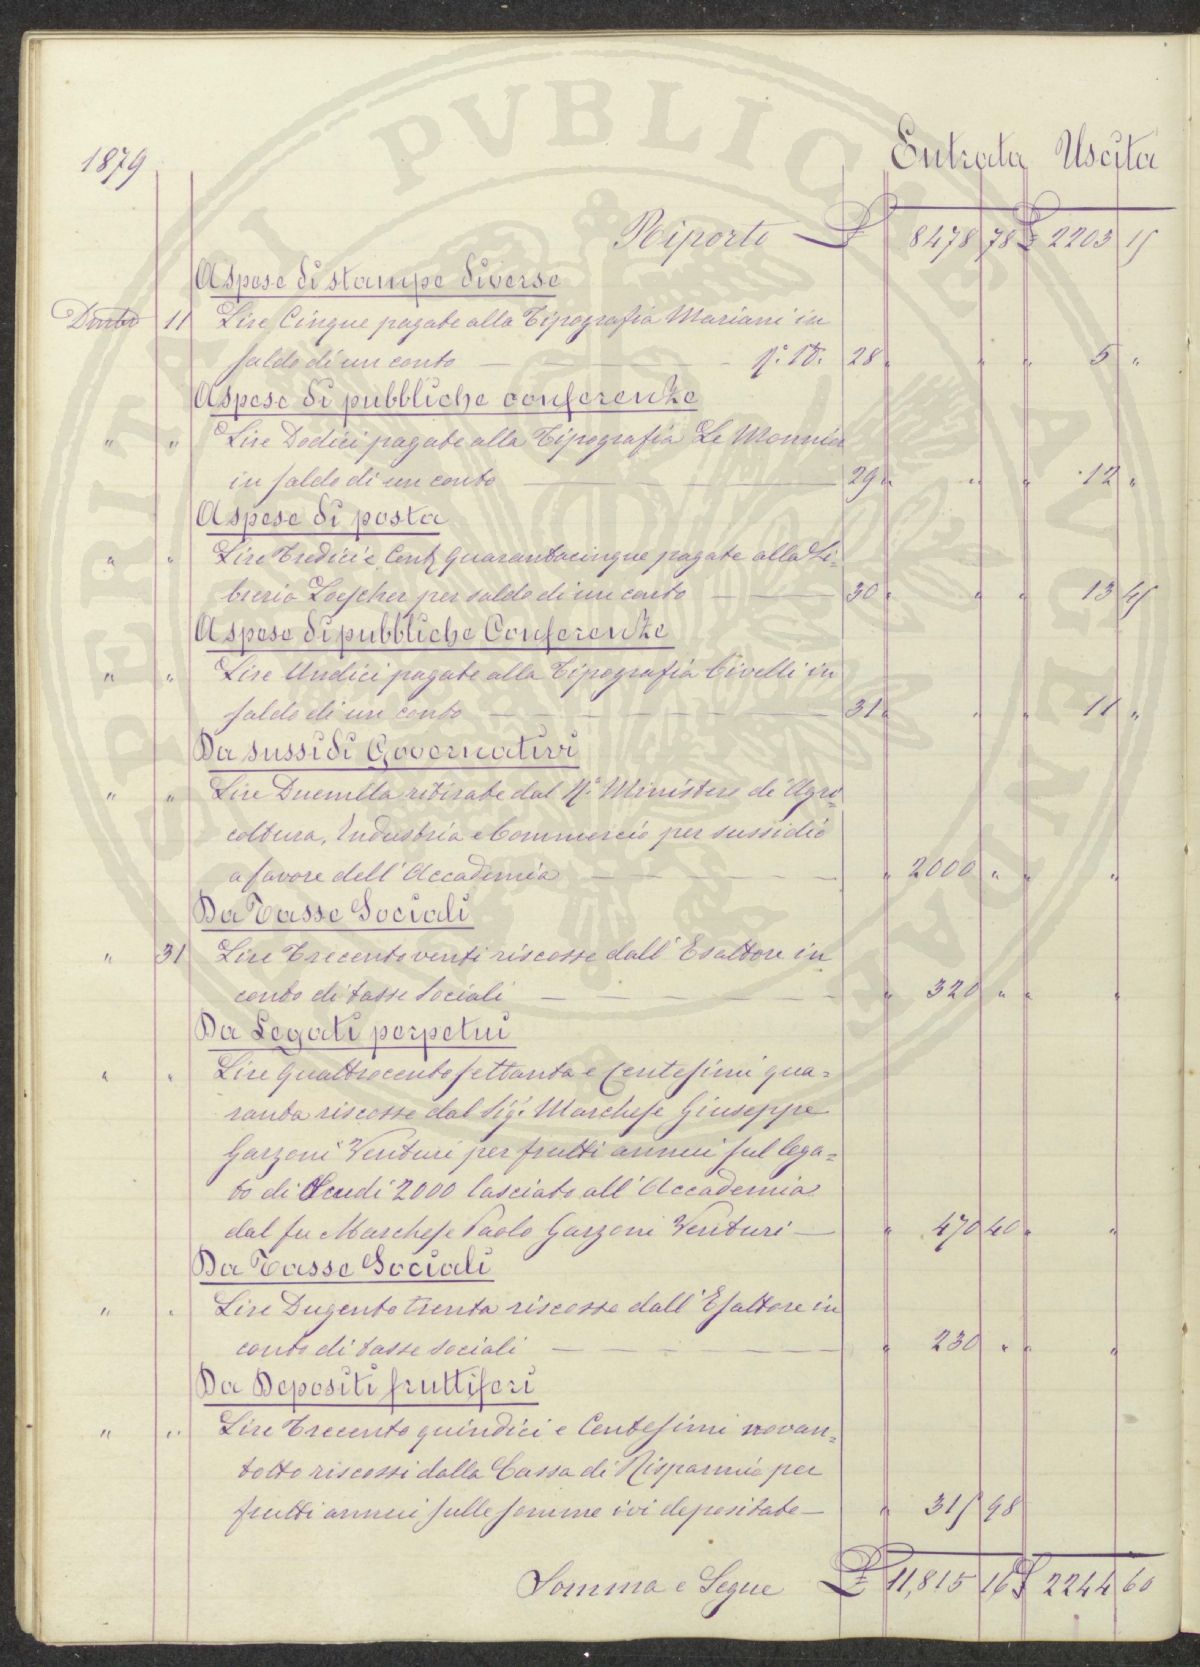 PERITAI PVBLICAE AVGENDAE
1879 Entrata Uscita
Riporto £ 8478 78 £ 2203 15
A spese di stampe diverse
11 Lire Cinque pagate alla Tipografia Mariani in
saldo di un conto — — — — 28 " " " 5 "
A spese di pubbliche conferenze
" " Lire Dodici pagate alla Tipografia Le Monnier
in saldo di un conto — 29 " " " 12 "
A spese di posta
" " Lire Tredici e Cent. Quarantacinque pagate alla Li=
breria Loescher per saldo di un conto — — 30 " " " 13 45
A spese di pubbliche Conferenze
" " Lire Undici pagate alla Tipografia Civelli in
saldo di un conto — — — — 31 " " " 11 "
Da sussidi Governativi
" " Lire Duemila ritirate dal R.° Ministero di Agri=
coltura, Industria e Commercio per sussidio
a favore dell'Accademia — — — " 2000 " " "
Da Tasse Sociali
" 31 Lire Trecentoventi riscosse dall'Esattore in
conto di tasse sociali — — — " 320 " " "
Da Legati perpetui
" " Lire Quattrocento settanta e Centesimi qua=
ranta riscosse dal Sig.r Marchese Giuseppe
Garzoni Venturi per frutti annui sul lega=
to di Scudi 2000 lasciato all'Accademia
dal fu Marchese Paolo Garzoni Venturi — " 470 40 " "
Da Tasse Sociali
" " Lire Dugento trenta riscosse dall'Esattore in
conto di tasse sociali — — — " 230 " " "
Da Depositi fruttiferi
" " Lire Trecento quindici e Centesimi novan=
totto riscossi dalla Cassa di Risparmio per
frutti annui sulle somme ivi depositate — " 315 98
Somma e Segue £ 11,815 16 £ 2244 60